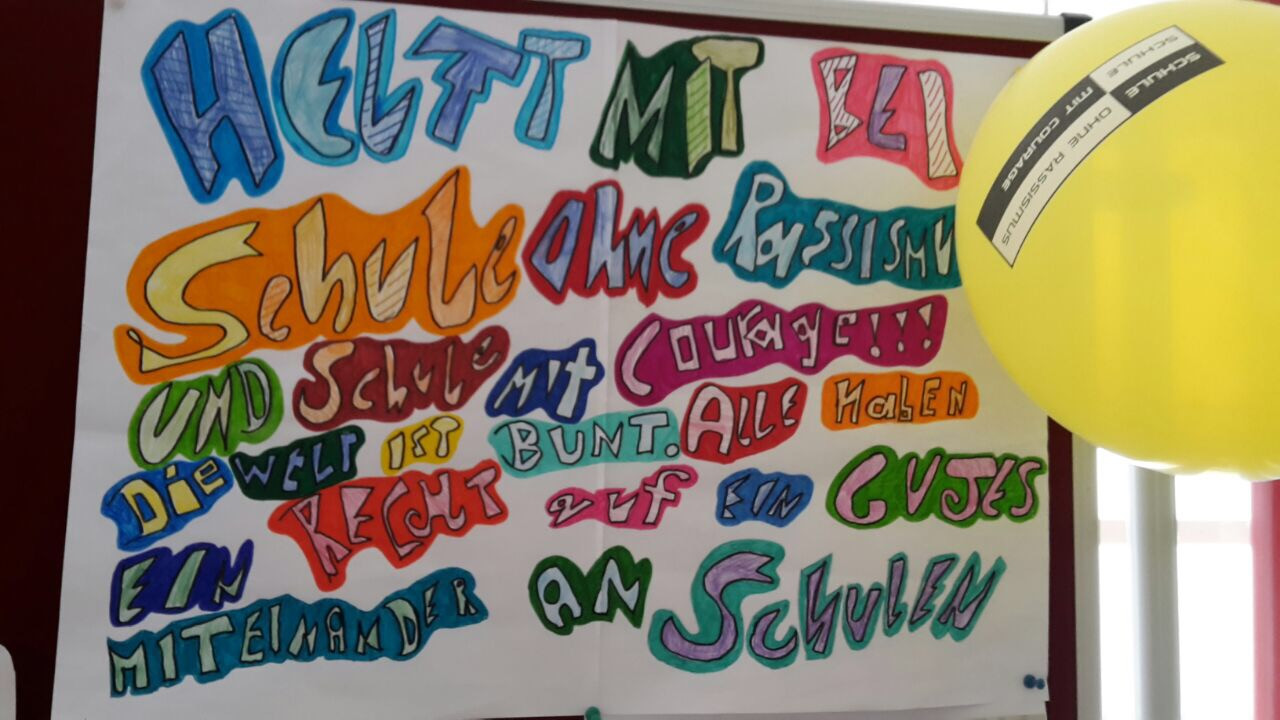 HELFT MIT BEI
Schule ohne Rassismu
UND Schule mit Courage!!!
Die WELT IST BUNT. ALLE HabEN
EIN RECHT auf EIN GUTES
MITEINANDER AN SchulEN
SCHULE OHNE RASSISMUS
SCHULE MIT COURAGE